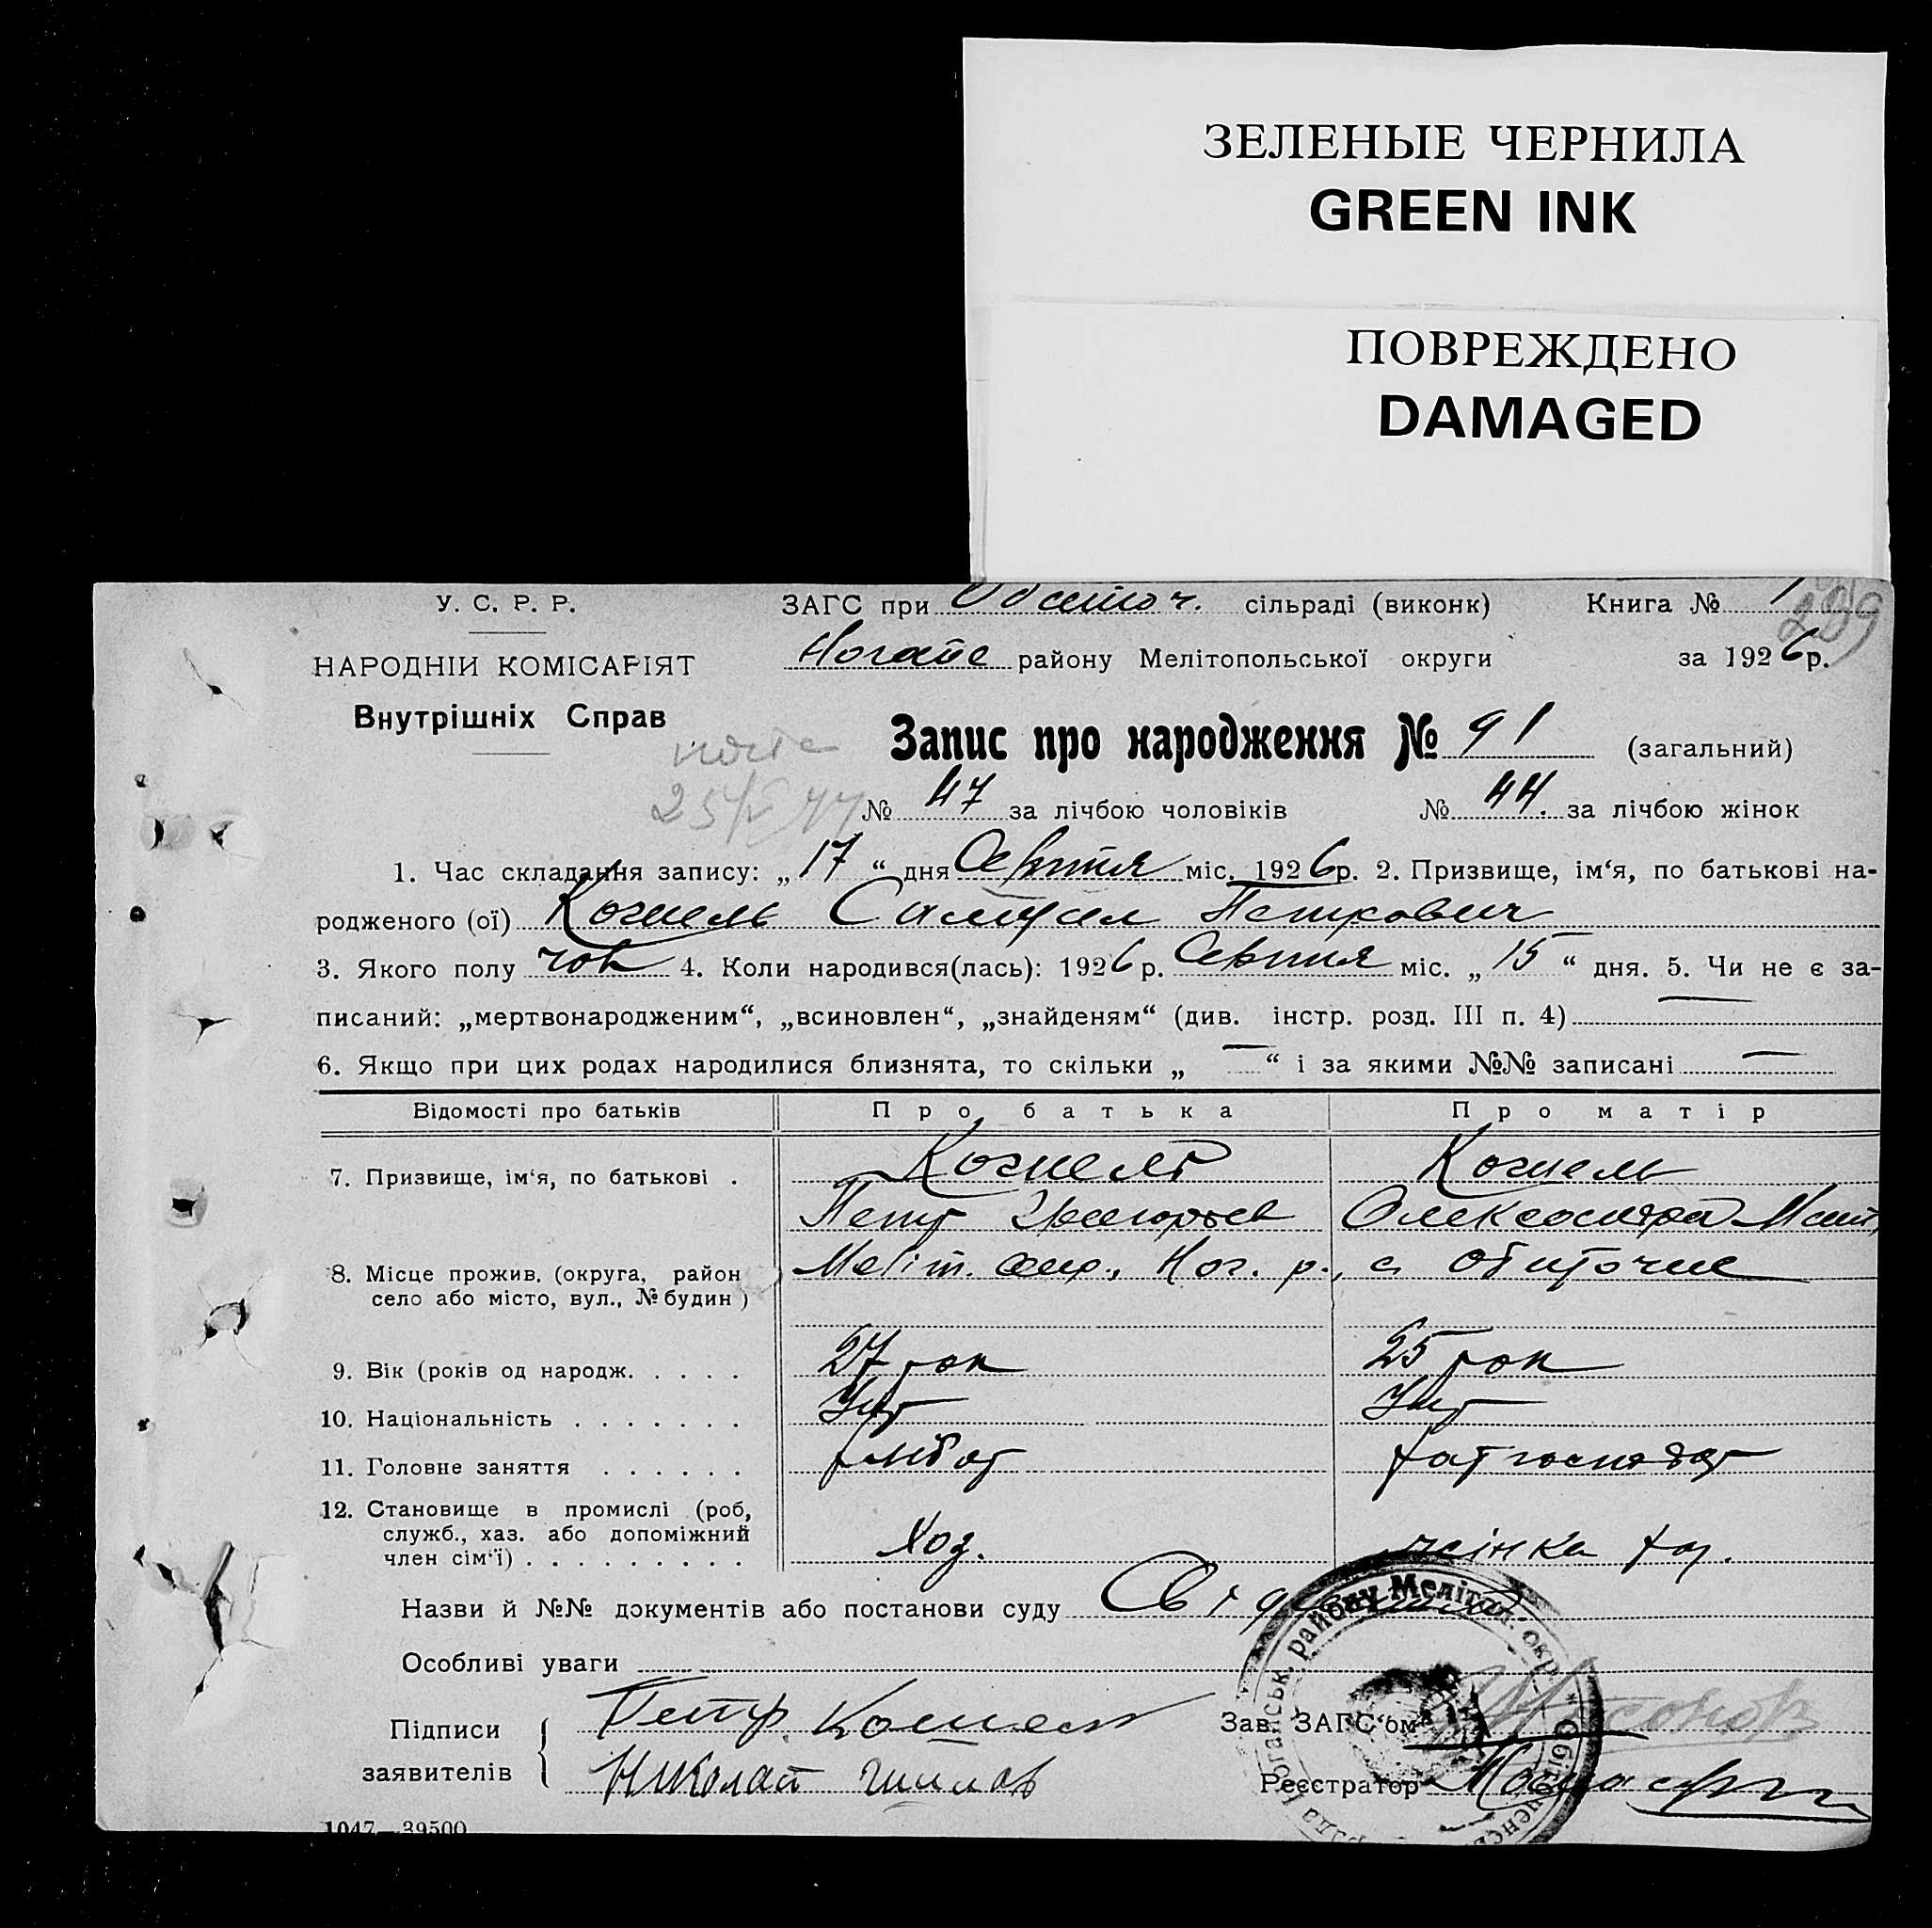 ЗЕЛЕНЫЕ ЧЕРНИЛА
GREEN INK
ПОВРЕЖДЕНО
DAMAGED
У. С. Р. Р. ЗАГС при Обиточ. сільраді (виконк) Книга № 1
289
НАРОДНІЙ КОМІСАРІЯТ Ногайс району Мелітопольської округи за 1926 р.
Внутрішніх Справ
Запис про народження № 91 (загальний)
№ 47 за лічбою чоловіків № 44. за лічбою жінок
1. Час складання запису: „ 17 “ дня Серпня міс. 1926 р. 2. Призвище, ім‘я, по батькові на-
родженого (ої) Самуил Петрович
3. Якого полу чол 4. Коли народився(лась): 1926 р. Серпня міс. „ 15 “ дня. 5. Чи не є за-
писаний: „мертвонародженим“, „всиновлен“, „знайденям“ (див. інстр. розд. III п. 4) —
6. Якщо при цих родах народилися близнята, то скільки „ — “ і за якими №№ записані —
Відомості про батьків Про батька Про матір
7. Призвище, ім‘я, по батькові .
Петр Олександра
8. Місце прожив. (округа, район Меліт. окр., Ног. р., с Обиточне
село або місто, вул., № будин )
9. Вік (років од народж. . . . . 27 рок 25 рок
10. Національність . . . . . . . Укр Укр
11. Головне заняття . . . . . . хлібор
12. Становище в промислі (роб,
служб., хаз. або допоміжний
член сім‘ї) . . . . . . . . . Хоз. жінка хоз.
Назви й №№ документів або постанови суду
Особливі уваги
Підписи Петр Зав. ЗАГС‘ом
заявителів Николай Реєстратор
району Меліт. окр.
1047—39500